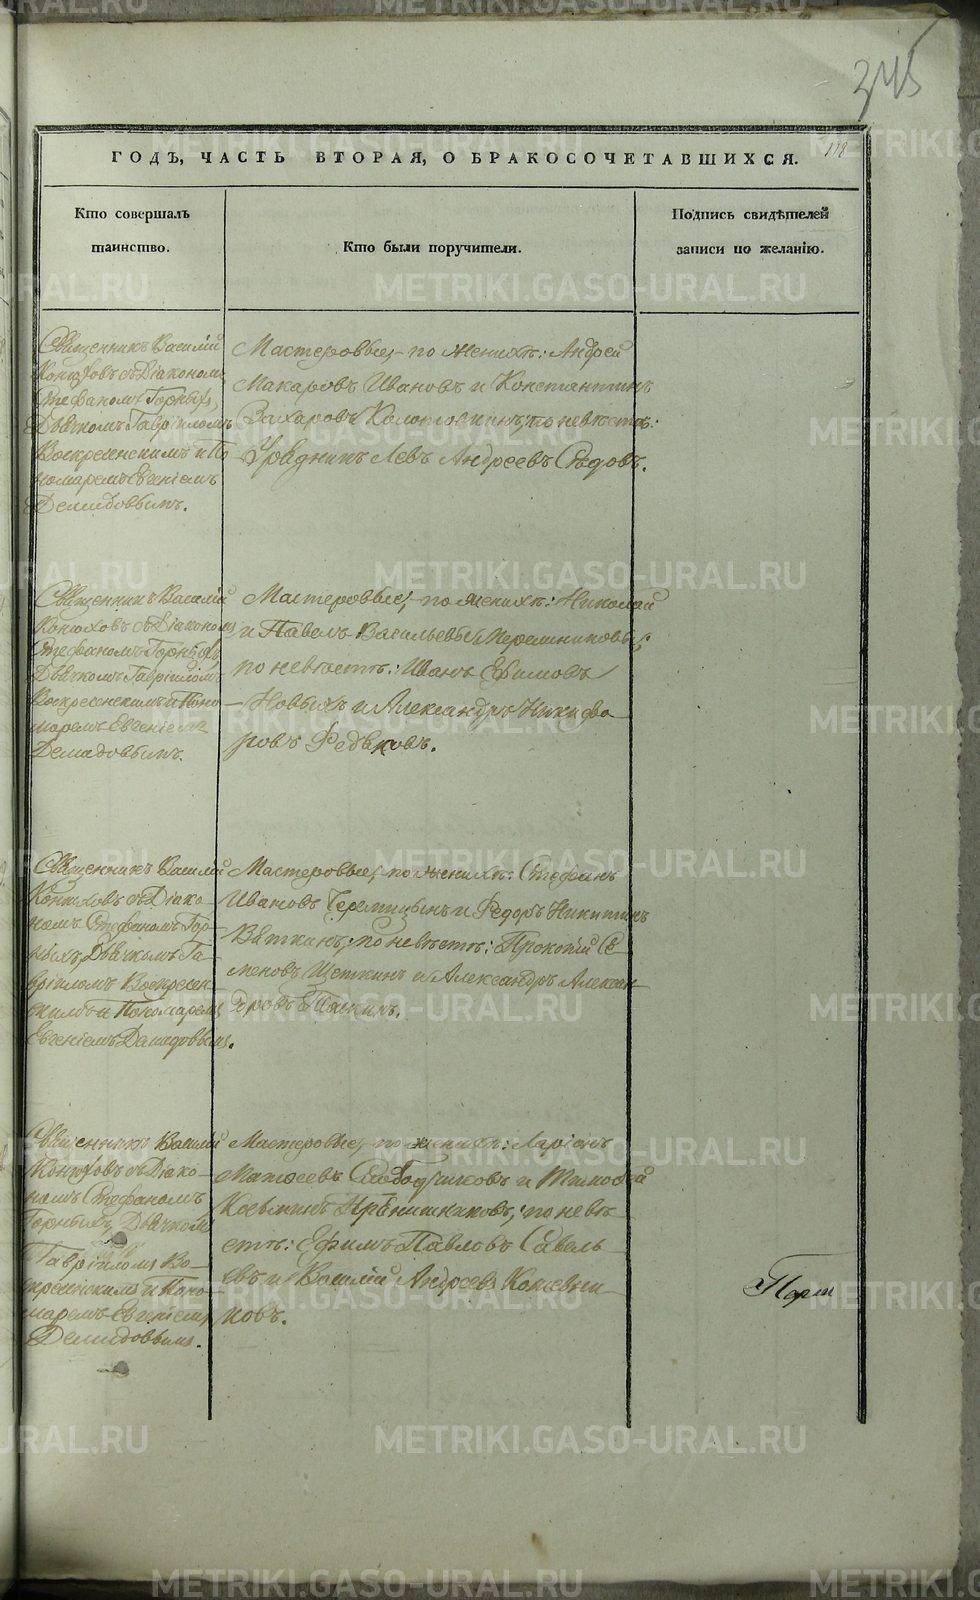 345
178
ГОДЪ, ЧАСТЬ ВТОРАЯ, О БРАКОСОЧЕТАВШИХСЯ.
Кто совершалъ
таинство.
Кто были поручители.
Подпись свидѣтелей
записи по желанію.
Священникъ Василій
Конюховъ съ Діакономъ
Стефаномъ Горныхъ,
Дьячкомъ Гавріиломъ
Воскресенскимъ и По
номаремъ Евгеніемъ
Демидовымъ.
Мастеровые, по женихѣ: Андрей
Макаровъ Ивановъ и Константинъ
Захаровъ по невѣстѣ:
Урядникъ Левъ Андреевъ Сѣдовъ.
Священникъ Василій
Конюховъ съ Діакономъ
Стефаномъ Горныхъ,
Дьячкомъ Гавріиломъ
Воскресенскимъ и Поно
маремъ Евгеніемъ
Демидовымъ.
Мастеровые, по женихѣ: Николай
и Павелъ Васильевы Мерешниковы,
по невѣстѣ: Иванъ Ефимовъ
Новыхъ и Александръ Никифо
ровъ Федьковъ.
Священникъ Василій
Конюховъ съ Діако
номъ Стефаномъ Гор
ныхъ, Дьячкомъ Га
вріиломъ Воскресен
скимъ и Пономаремъ
Евгеніемъ Демидовымъ.
Мастеровые, по женихѣ: Стефанъ
Ивановъ и Федоръ Никитинъ
Вяткинъ, по невѣстѣ: Прокопій Се
меновъ Щеткинъ и Александръ Алексан
дровъ
Священникъ Василій
Конюховъ съ Діако
номъ Стефаномъ
Горныхъ, Дьячкомъ
Гавріиломъ Во
скресенскимъ и Поно
маремъ Евгеніемъ
Демидовымъ.
Мастеровые, по женихѣ: Ларіонъ
Матвеевъ Слободчиковъ и Тимофей
Козьминъ по невѣ
стѣ: Ефимъ Павловъ Савель
евъ и Василій Андреевъ Кожевни
ковъ.
METRIKI.GASO-URAL.RU